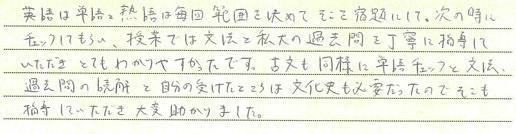 英語は単語と熟語は毎回範囲を決めてそこを宿題にして、次の時に
チェックしてもらい、授業では文法と私大の過去問を丁寧に指導して
いただきとてもわかりやすかったです。古文も同様に単語チェックと文法、
過去問の読解と自分の受けたところは文化史も必要だったのでそこも
指導していただき大変助かりました。